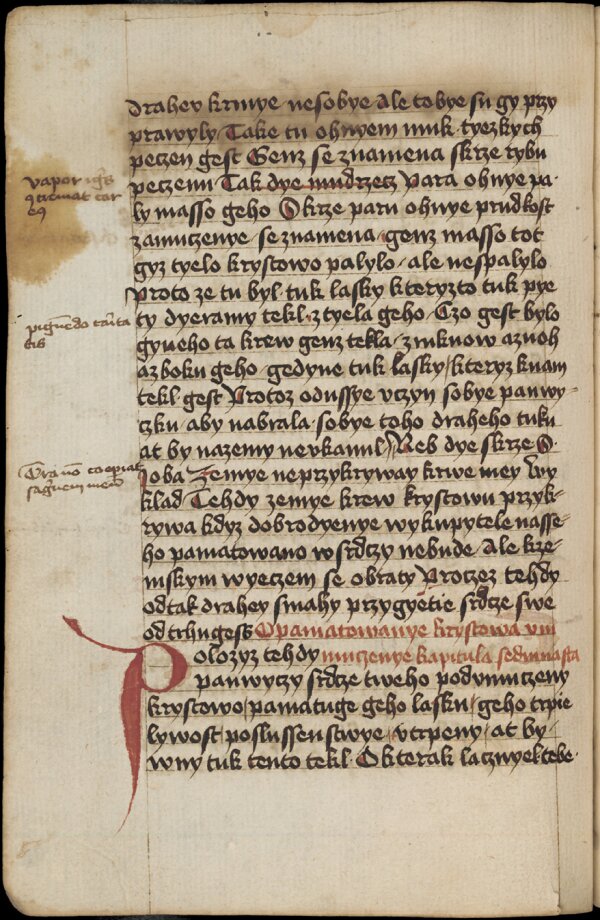 drahey krwye nesobye Ale tobye su gy przy
prawyly Take tu ohnyem muk tyezkych
peczen gest Genz se znamena skrze rybu
peczenu Tak dye mudrzecz Para ohnye pa-
ly masso geho Skrze paru ohnye prudkost
zamuczenye se znamena genz masso tot
gyz tyelo krystowo palylo ale nespalylo
Proto ze tu byl tuk lasky kteryzto tuk pye
ty dyeramy tekl z tyela geho Czo gest bylo
gyneho ta krew genz tekla z rukuow a z noh
a z boku geho gedyne tuk lasky kteryz k nam
tekl gest Protoz o dussye vczyn sobye panwy-
czku aby nabrala sobye toho draheho tuku
at by na zemy nevkanul Neb dye skrze S
Joba Zemye ne przykryway krwe mey Wy
klad Tehdy zemye krew krystowu przyk-
rywa kdyz dobrodyenye wykupytele nasse-
ho pamatowano w srdczy nebude Ale kze-
mskym wyeczem se obraty Proczez tehdy
od tak drahey smahy przygyetie srdcze swe
odtrhugess O pamatowanye krystowa vm
Polozyz tehdy muczenye kapitula sedmnasta
panwyczy srdcze tweho pod vmuczeny
krystowo pamatuge geho lasku geho trpie
lywost poslussenstwye vtrpeny at by
wny tuk tento tekl O kterak lacznye k tobe